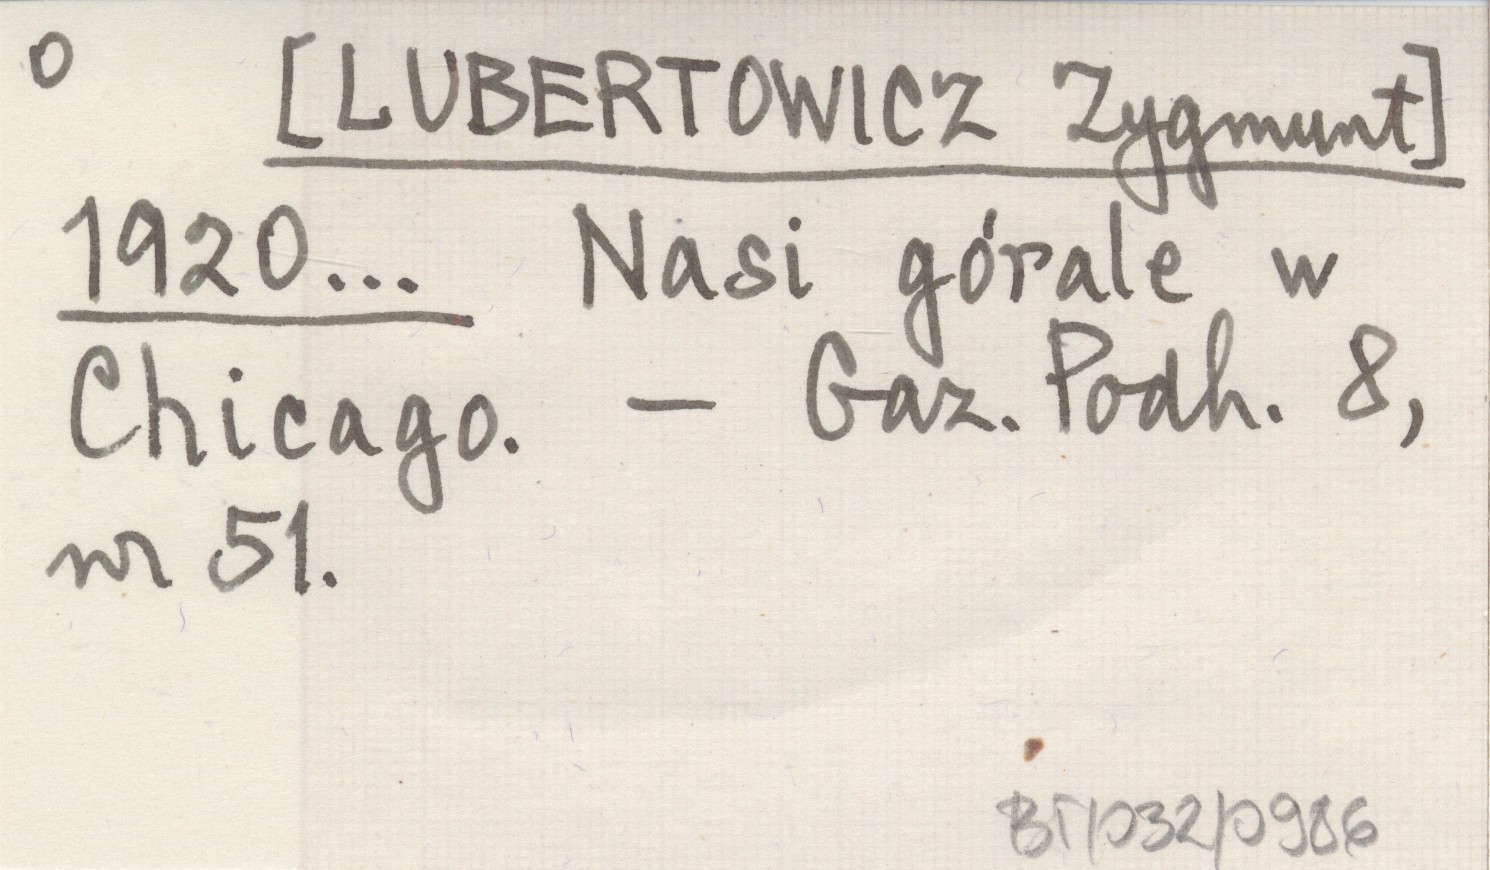 o [LUBERTOWICZ Zygmunt]
1920... Nasi górale w
Chicago. — Gaz. Podh. 8,
nr 51.
BT/032/0986